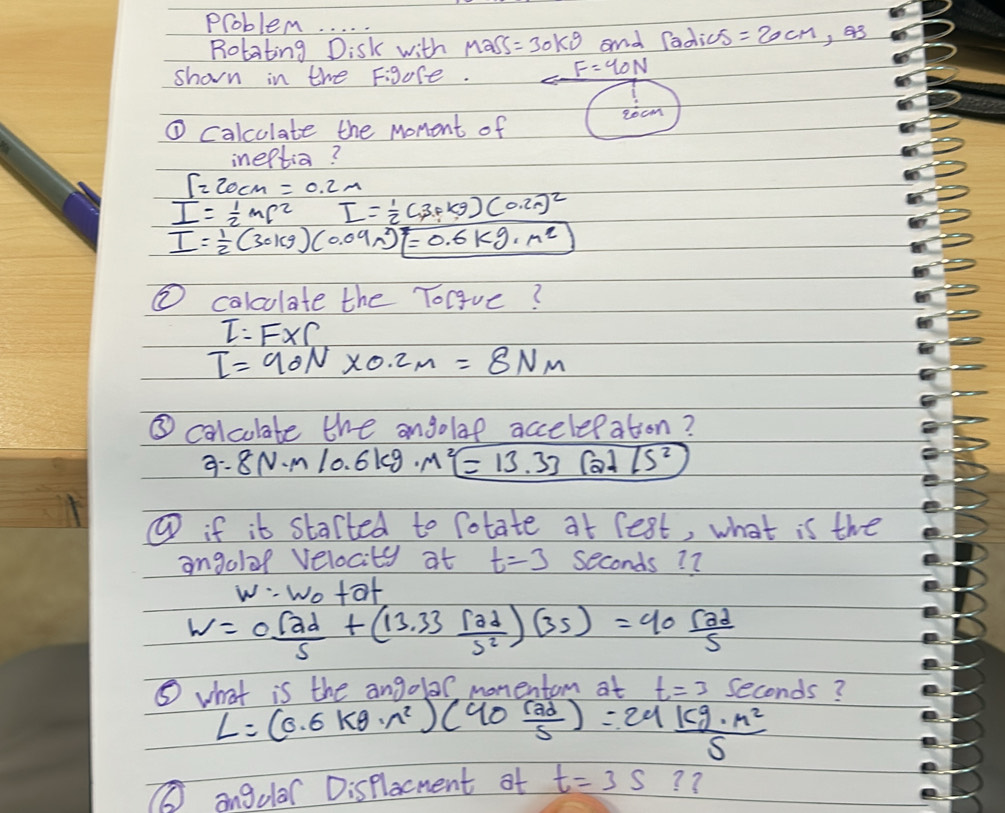 Problem .....
Rotating Disk with Mass = 30kg and radius = 20cm, as
shown in the Figure.
F = 40N
20cm
① Calculate the Moment of
inertia ?
r = 20cm = 0.2m
I = 1/2 mr² I = 1/2 (30kg)(0.2m)²
I = 1/2 (30kg)(0.04m²) = 0.6 kg.m²
② calculate the Torque ?
T = F×r
T = 40N × 0.2m = 8Nm
③ calculate the angular acceleration ?
a = 8N.m / 0.6kg.m² = 13.33 rad/s²
④ if it started to rotate at rest, what is the
angular velocity at t = 3 seconds ??
w = w₀ + at
w = 0 rad/s + (13.33 rad/s²)(3s) = 40 rad/s
⑤ what is the angular momentum at t = 3 seconds ?
L = (0.6 kg.m²)(40 rad/s) = 24 kg.m²/s
⑥ angular Displacment at t = 3 s ??